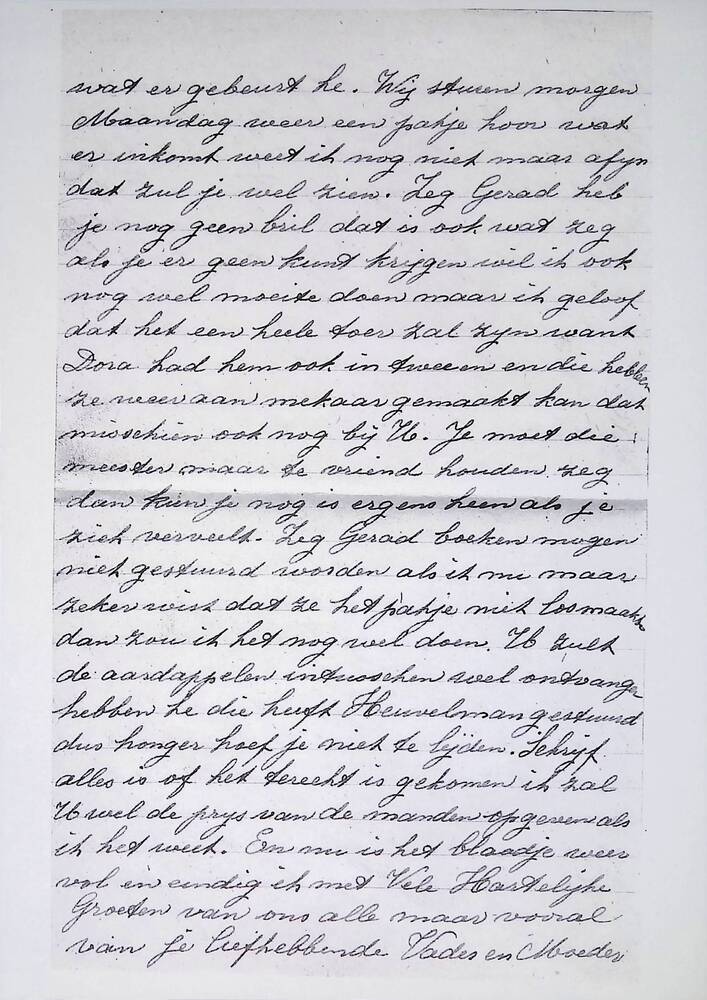 wat er gebeurt he. Wij sturen morgen
Maandag weer een pakje hoor wat
er inkomt weet ik nog niet maar afyn
dat zul je wel zien. Zeg Gerad heb
je nog geen bril dat is ook wat zeg
als je er geen kunt krijgen wil ik ook
nog wel moeite doen maar ik geloof
dat het een heele toer zal zyn want
Dora had hem ook in tweeen en die hebben
ze weer aan mekaar gemaakt kan dat
misschien ook nog bij U. Je moet die
meester maar te vriend houden zeg
dan kun je nog is ergens heen als je
ziek verveelt. Zeg Gerad boeken mogen
niet gestuurd worden als ik nu maar
zeker wist dat ze het pakje niet losmaakte
dan zou ik het nog wel doen. U zult
de aardappelen intusschen wel ontvangen
hebben he die heeft Heuvelman gestuurd
dus honger hoef je niet te lijden. Schrijf
alles is of het terecht is gekomen ik zal
U wel de prys van de manden opgeven als
ik het weet. En nu is het blaadje weer
vol en eindig ik met Vele Hartelijke
Groeten van ons alle maar vooral
van je liefhebbende Vader en Moeder